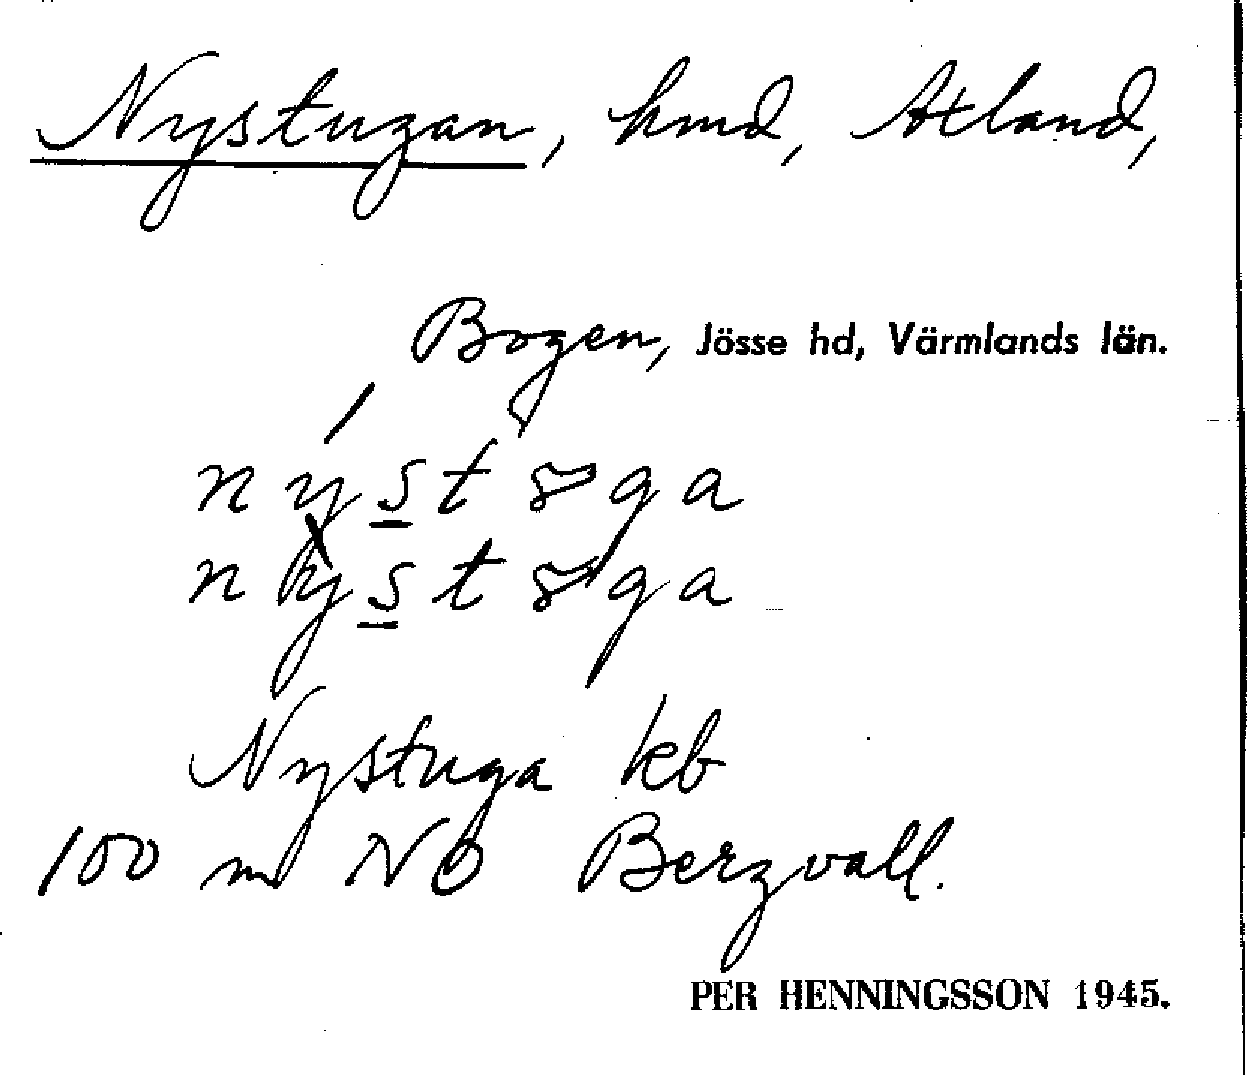 Nystugan, hmd, Atland,
Bogen, Jösse hd, Värmlands län.
Nystuga kb
100 m NO Bergvall.
PER HENNINGSSON 1945.